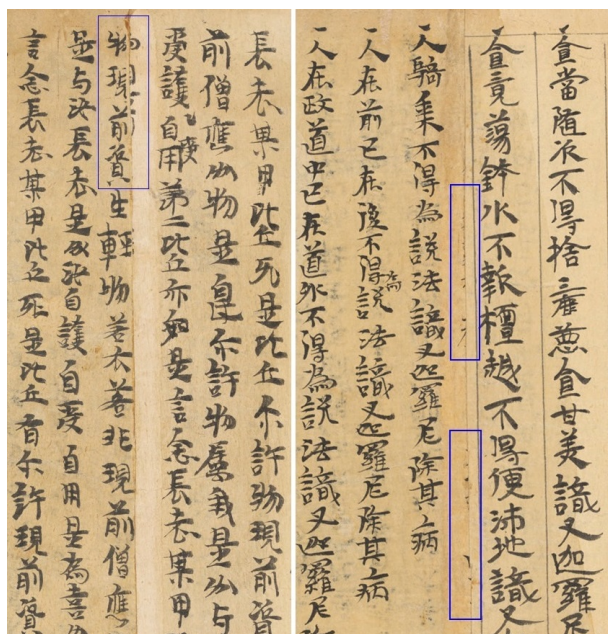 食當隨次不得捨葱食甘美識叉迦羅尼
食竟蕩鉢水不報檀越不得便沛地識叉
人騎乘不得為說法識叉迦羅尼除其上病
人在前已在後不得為說法識叉迦羅尼除其上病
人在政道中已在道外不得為說法識叉迦羅尼除
長老某甲比丘死是比丘尒許物現前資
前僧應分物是自尒許物屬我是分与
受護自受自用第二比丘亦如是言念長老某甲
物現前資生輕物若衣若非現前僧應
是与汝長老是分汝自護自受自用是為
言念長老某甲比丘死是比丘有尒許現前資